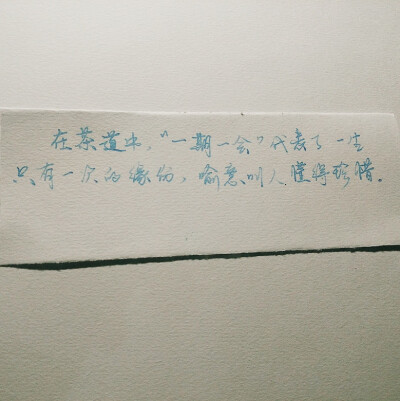 在茶道中，“一期一会”代表了一生
只有一次的缘份，喻意叫人懂得珍惜。